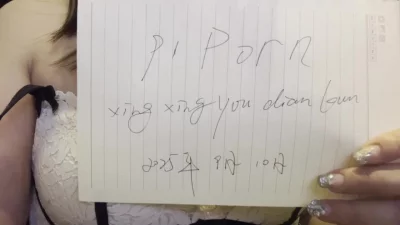 Pi Porn
xing xing you dian
2025年 9月 10日